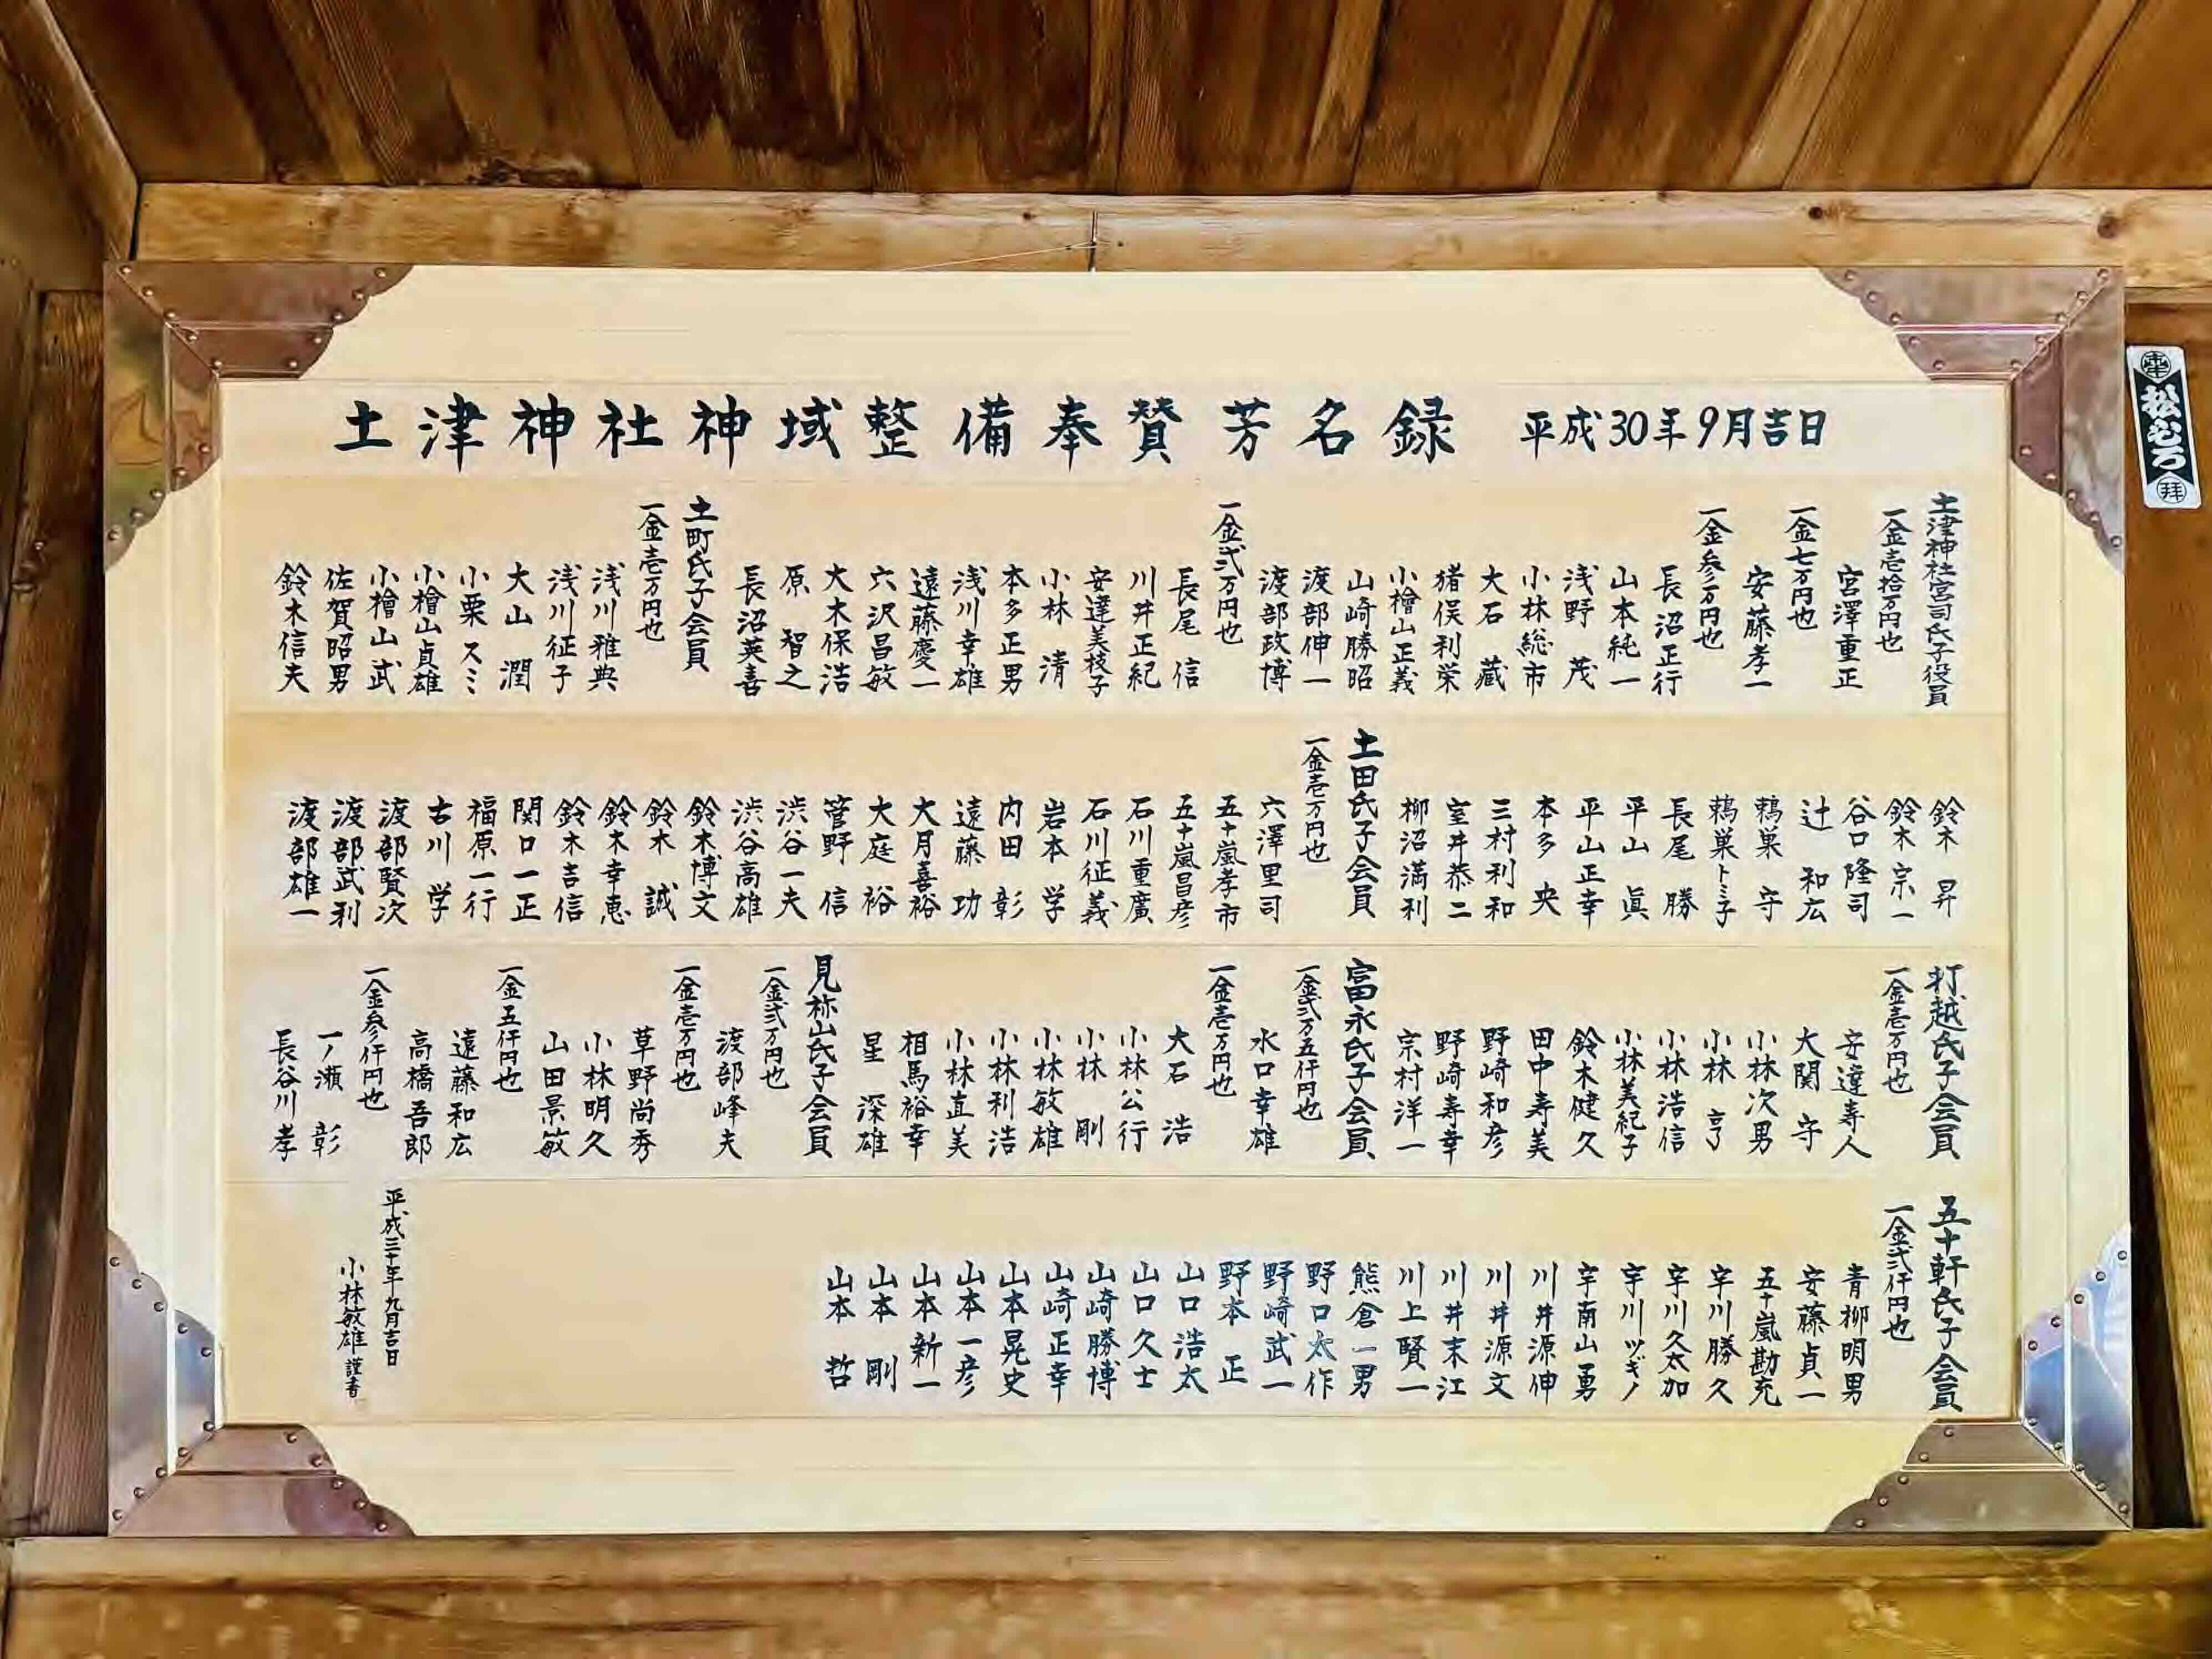 土津神社神域整備奉賛芳名録 平成30年9月吉日
土津神社宮司氏子役員
一金壱拾万円也
宮澤重正
一金七万円也
安藤孝一
一金参万円也
長沼正行
山本純一
浅野茂
小林総市
大石蔵
猪俣利栄
小檜山正義
山崎勝昭
渡部伸一
渡部政博
一金弐万円也
長尾信
川井正紀
安達美枝子
小林清
本多正男
浅川幸雄
遠藤慶一
六沢昌敏
大木保浩
原智之
長沼英喜
土町氏子会員
一金壱万円也
浅川雅典
浅川征子
大山潤
小栗スミ
小檜山貞雄
小檜山武
佐賀昭男
鈴木信夫
鈴木昇
鈴木宗一
谷口隆司
辻和広
鵜巣守
鵜巣トミ子
長尾勝
平山眞
平山正幸
本多央
三村利和
室井恭二
柳沼満利
土田氏子会員
一金壱万円也
六澤里司
五十嵐孝市
五十嵐昌彦
石川重廣
石川征義
岩本学
内田彰
遠藤功
大月喜裕
大庭裕
菅野信
渋谷一夫
渋谷高雄
鈴木博文
鈴木誠
鈴木幸恵
鈴木吉信
関口一正
福原一行
古川学
渡部賢次
渡部武利
渡部雄一
打越氏子会員
一金壱万円也
安達寿人
大関守
小林次男
小林亨
小林浩信
小林美紀子
鈴木健久
田中寿美
野崎和彦
野崎寿幸
宗村洋一
富永氏子会員
一金弐万五仟円也
水口幸雄
一金壱万円也
大石浩
小林公行
小林剛
小林敏雄
小林利浩
小林直美
相馬裕幸
星深雄
見祢山氏子会員
一金弐万円也
渡部峰夫
一金壱万円也
草野尚秀
小林明久
山田景敏
一金五仟円也
遠藤和広
高橋吾郎
一金参仟円也
一ノ瀬彰
長谷川孝
五十軒氏子会員
一金弐仟円也
青柳明男
安藤貞一
五十嵐勘充
宇川勝久
宇川久太加
宇川ツギノ
宇南山勇
川井源伸
川井源文
川井末江
川上賢一
熊倉一男
野口太作
野崎武一
野本正
山口浩太
山口久士
山崎勝博
山崎正幸
山本晃史
山本一彦
山本新一
山本剛
山本哲
平成三十年九月吉日
小林敏雄 謹書
松むろ
拜